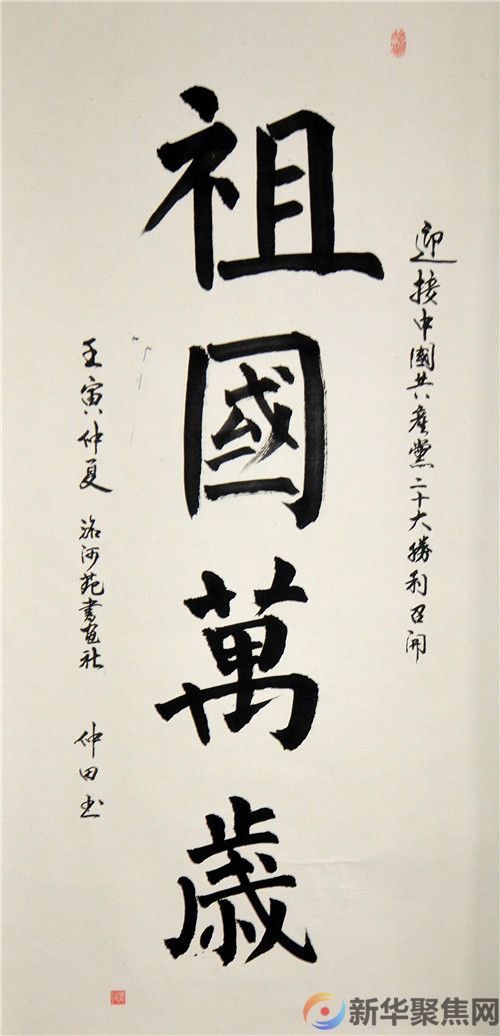 迎接中國共產黨二十大勝利召開
祖國萬歲
壬寅仲夏 洛河苑書画社 仲田書
新华聚焦网